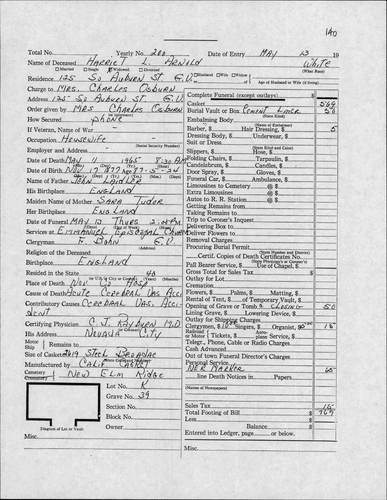 140
Total No. Yearly No. 200 Date of Entry MAY 13 19
Name of Deceased HARRIET L. ARNOLD White
Married Single Widowed Divorced (What Race)
Residence 125 So Auburn St. G.V. Husband Wife Widow
Age of Husband or Wife (if living)
Charge to MRS. Charles OBURN
Address 125 So Auburn St. G.V.
Order given by MRS Charles OBURN
How Secured phone
(Social Security Number)
If Veteran, Name of War
Occupation Housewife
Employer and Address
Date of Death MAY 11 1965 8:30 AM
Date of Birth Nov 17 1877 87-5-24
Name of Father John LAIDLER
His Birthplace ENGLAND
Maiden Name of Mother SARA TUDOR
Her Birthplace ENGLAND
Date of Funeral MAY 13 THURS 2:00 P.M.
Services at EMMANUEL EPISCOPAL Church
Clergyman F. John G.V.
(Address)
Religion of the Deceased
Birthplace ENGLAND
Resided in the State 40
Place of Death Nev Co Hosp
Cause of Death Acute CEREBRAL VAS ACCI
Contributory Causes CEREBRAL VAS ACCI-
DENT
Certifying Physician C. J. RAYBURN M.D
His Address NEVADA CITY
Motor Ship Remains to
Size of Casket 2019 Steel Brocade
Manufactured by Calif Casket
Cemetery Crematory New Elm Ridge
Lot No. K
Grave No. 39
Section No.
Block No.
Owner
Diagram of Lot or Vault
Misc.
Complete Funeral (except outlays) $
Casket 564
Burial Vault or Box Cement Liner 50
Embalming Body
(Name of Embalmer)
Barber, $ Hair Dressing, $ 5
Dressing Body, $ Underwear, $
Suit or Dress
Slippers, $ Hose, $
Folding Chairs, $ Tarpaulin, $
Candelabrum, $ Candles, $
Door Spray, $ Gloves, $
Funeral Car, $ Ambulance, $
Limousines to Cemetery @ $
Extra Limousines @ $
Autos to R. R. Station @ $
Getting Remains from
Taking Remains to
Trip to Coroner's Inquest
Delivering Box to
Deliver Flowers to
Removal Charges
Procuring Burial Permit
Certif. Copies of Death Certificates No.
Pall Bearer Service, $ Use of Chapel, $
Gross Total for Sales Tax $
Outlay for Lot
Cremation
Flowers, $ Palms, $ Matting, $
Rental of Tent, $ of Temporary Vault, $
Opening of Grave or Tomb & CLOSING 50
Lining Grave, $ Lowering Device, $
Outlay for Shipping Charges
Clergymen, $ 10 Singers, $ Organist, $ 15
Telegr., Phone, Cable or Radio Charges
Cash Advanced
Out of town Funeral Director's Charges
Personal Service
NER MARKER 65
line Death Notices in Papers
(Names of Newspapers)
Sales Tax
Total Footing of Bill $ 769
Less $
Balance $
Entered into Ledger, page or below.
Misc.